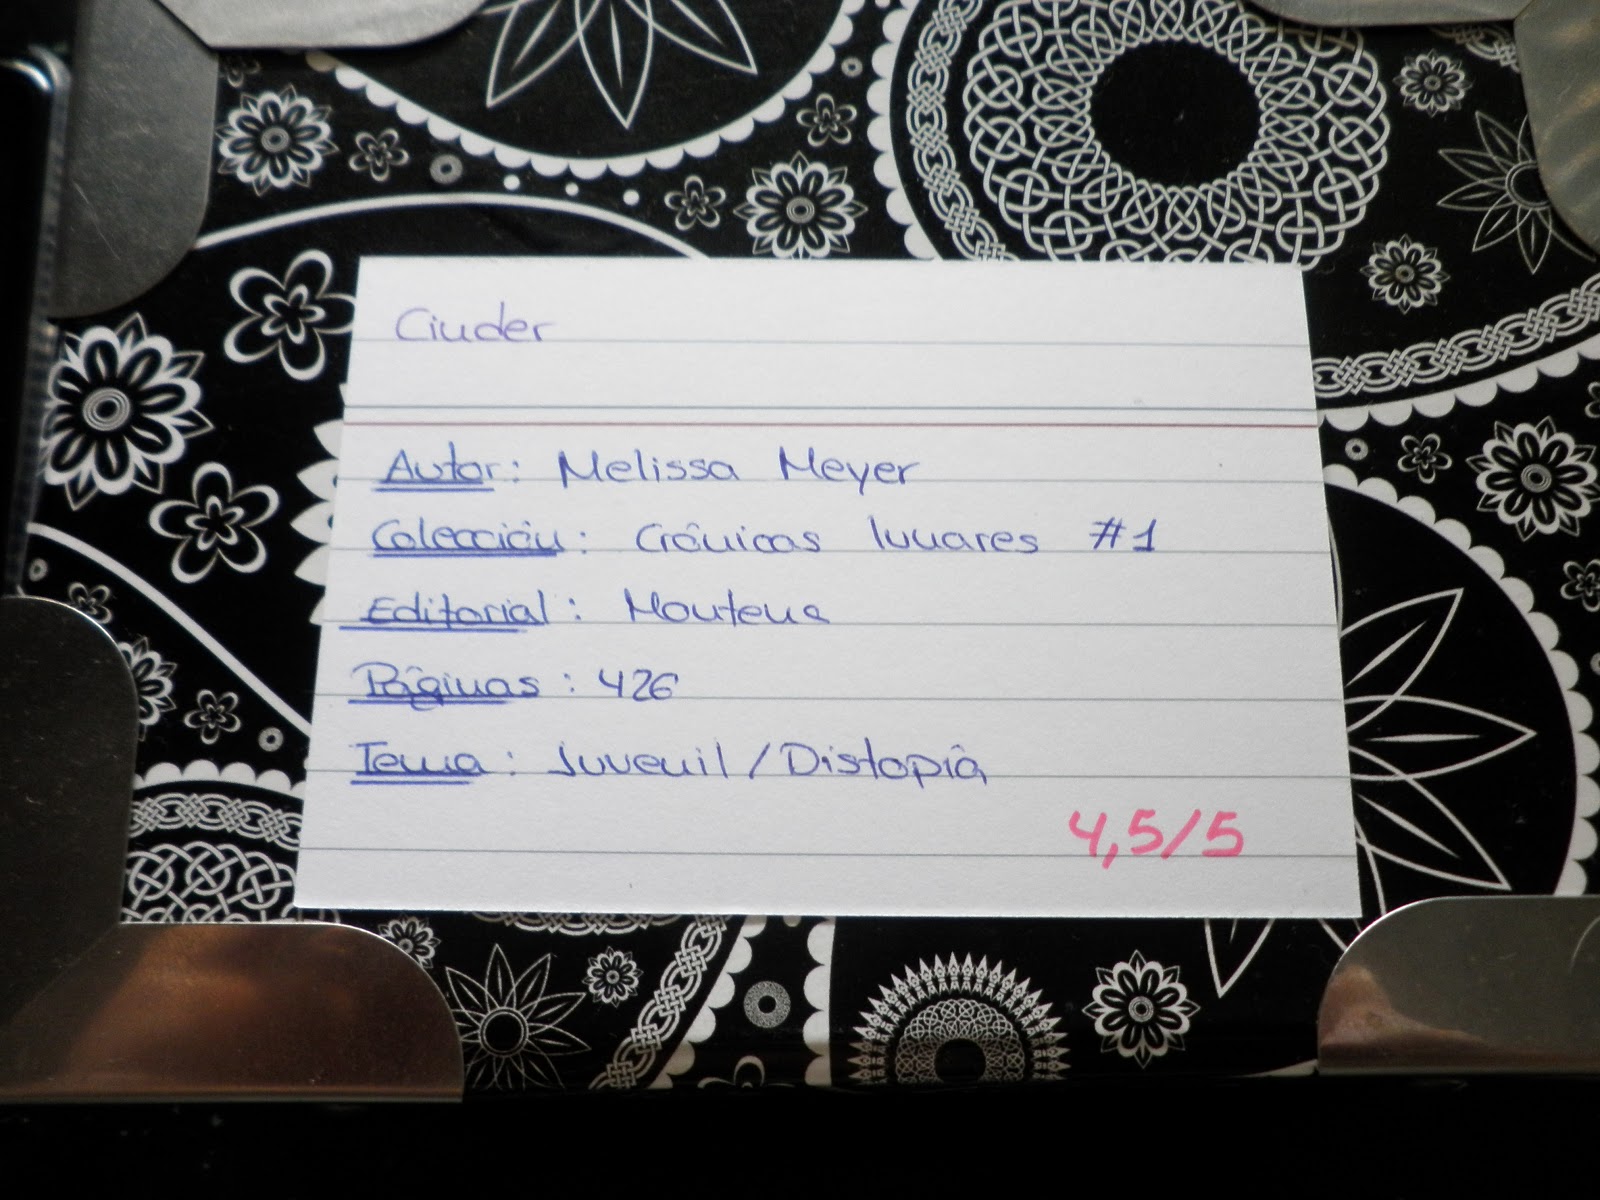 Cinder
Autor: Melissa Meyer
Colección: Crónicas lunares #1
Editorial: Montena
Páginas: 426
Tema: Juvenil/Distopía
4,5/5